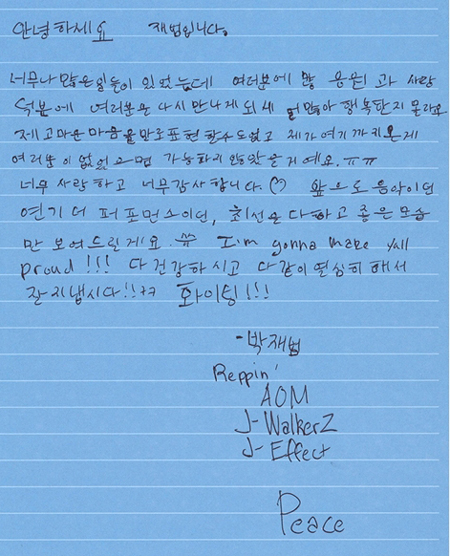 안녕하세요 재범입니다.
너무나 많은일들이 있었는데 여러분에 많 응원 과 사랑
덕분에 여러분은 다시 만나게 되 세 얼마나 행복한지 몰라요
제 고마운 마음을 말로표현 할수도없고 제가 여기 까지 온게
여러분 이 없었으면 가능하지 않았을거에요. ㅠㅠ
너무 사랑하고 너무감사 합니다.♡ 앞으로 음악이던
연기 더 퍼포먼스이던, 최선을 다하고 좋은 모습
만 보여드릴게요. ^^ I'm gonna make yall
proud !!! 다 건강하시고 다같이 열심히 해서
잘 지냅시다!!ㅋㅋ 화이팅!!!
-박재범
Reppin'
AOM
J-WalkerZ
J-Effect
Peace